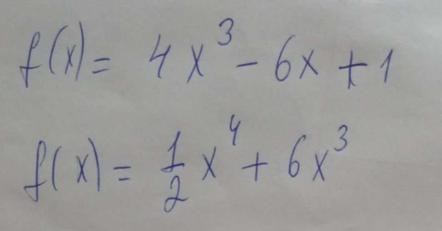 f(x) = 4x³ - 6x + 1
f(x) = ½x⁴ + 6x³